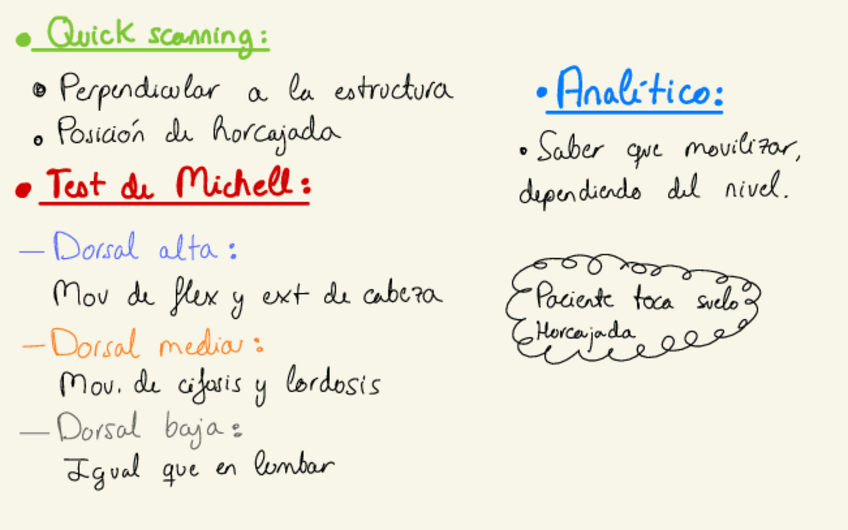 • Quick scanning:
• Perpendicular a la estructura
• Posición de horcajada
• Test de Michell:
— Dorsal alta:
Mov de flex y ext de cabeza
— Dorsal media:
Mov. de cifosis y lordosis
— Dorsal baja:
Igual que en lumbar
• Analítico:
• Saber que movilizar,
dependiendo del nivel.
Paciente toca suelo
Horcajada